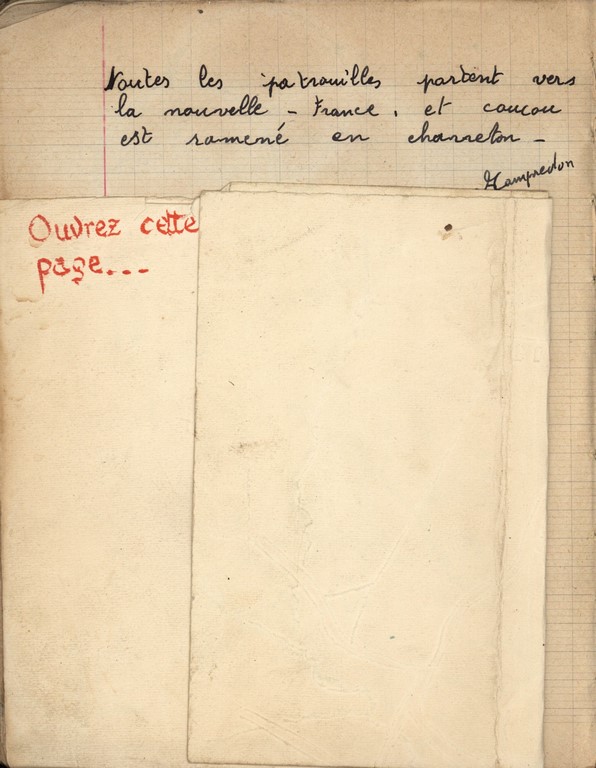 Toutes les patrouilles partent vers
la nouvelle - France, et coucou
est ramené en charreton -
Ouvrez cette
page...